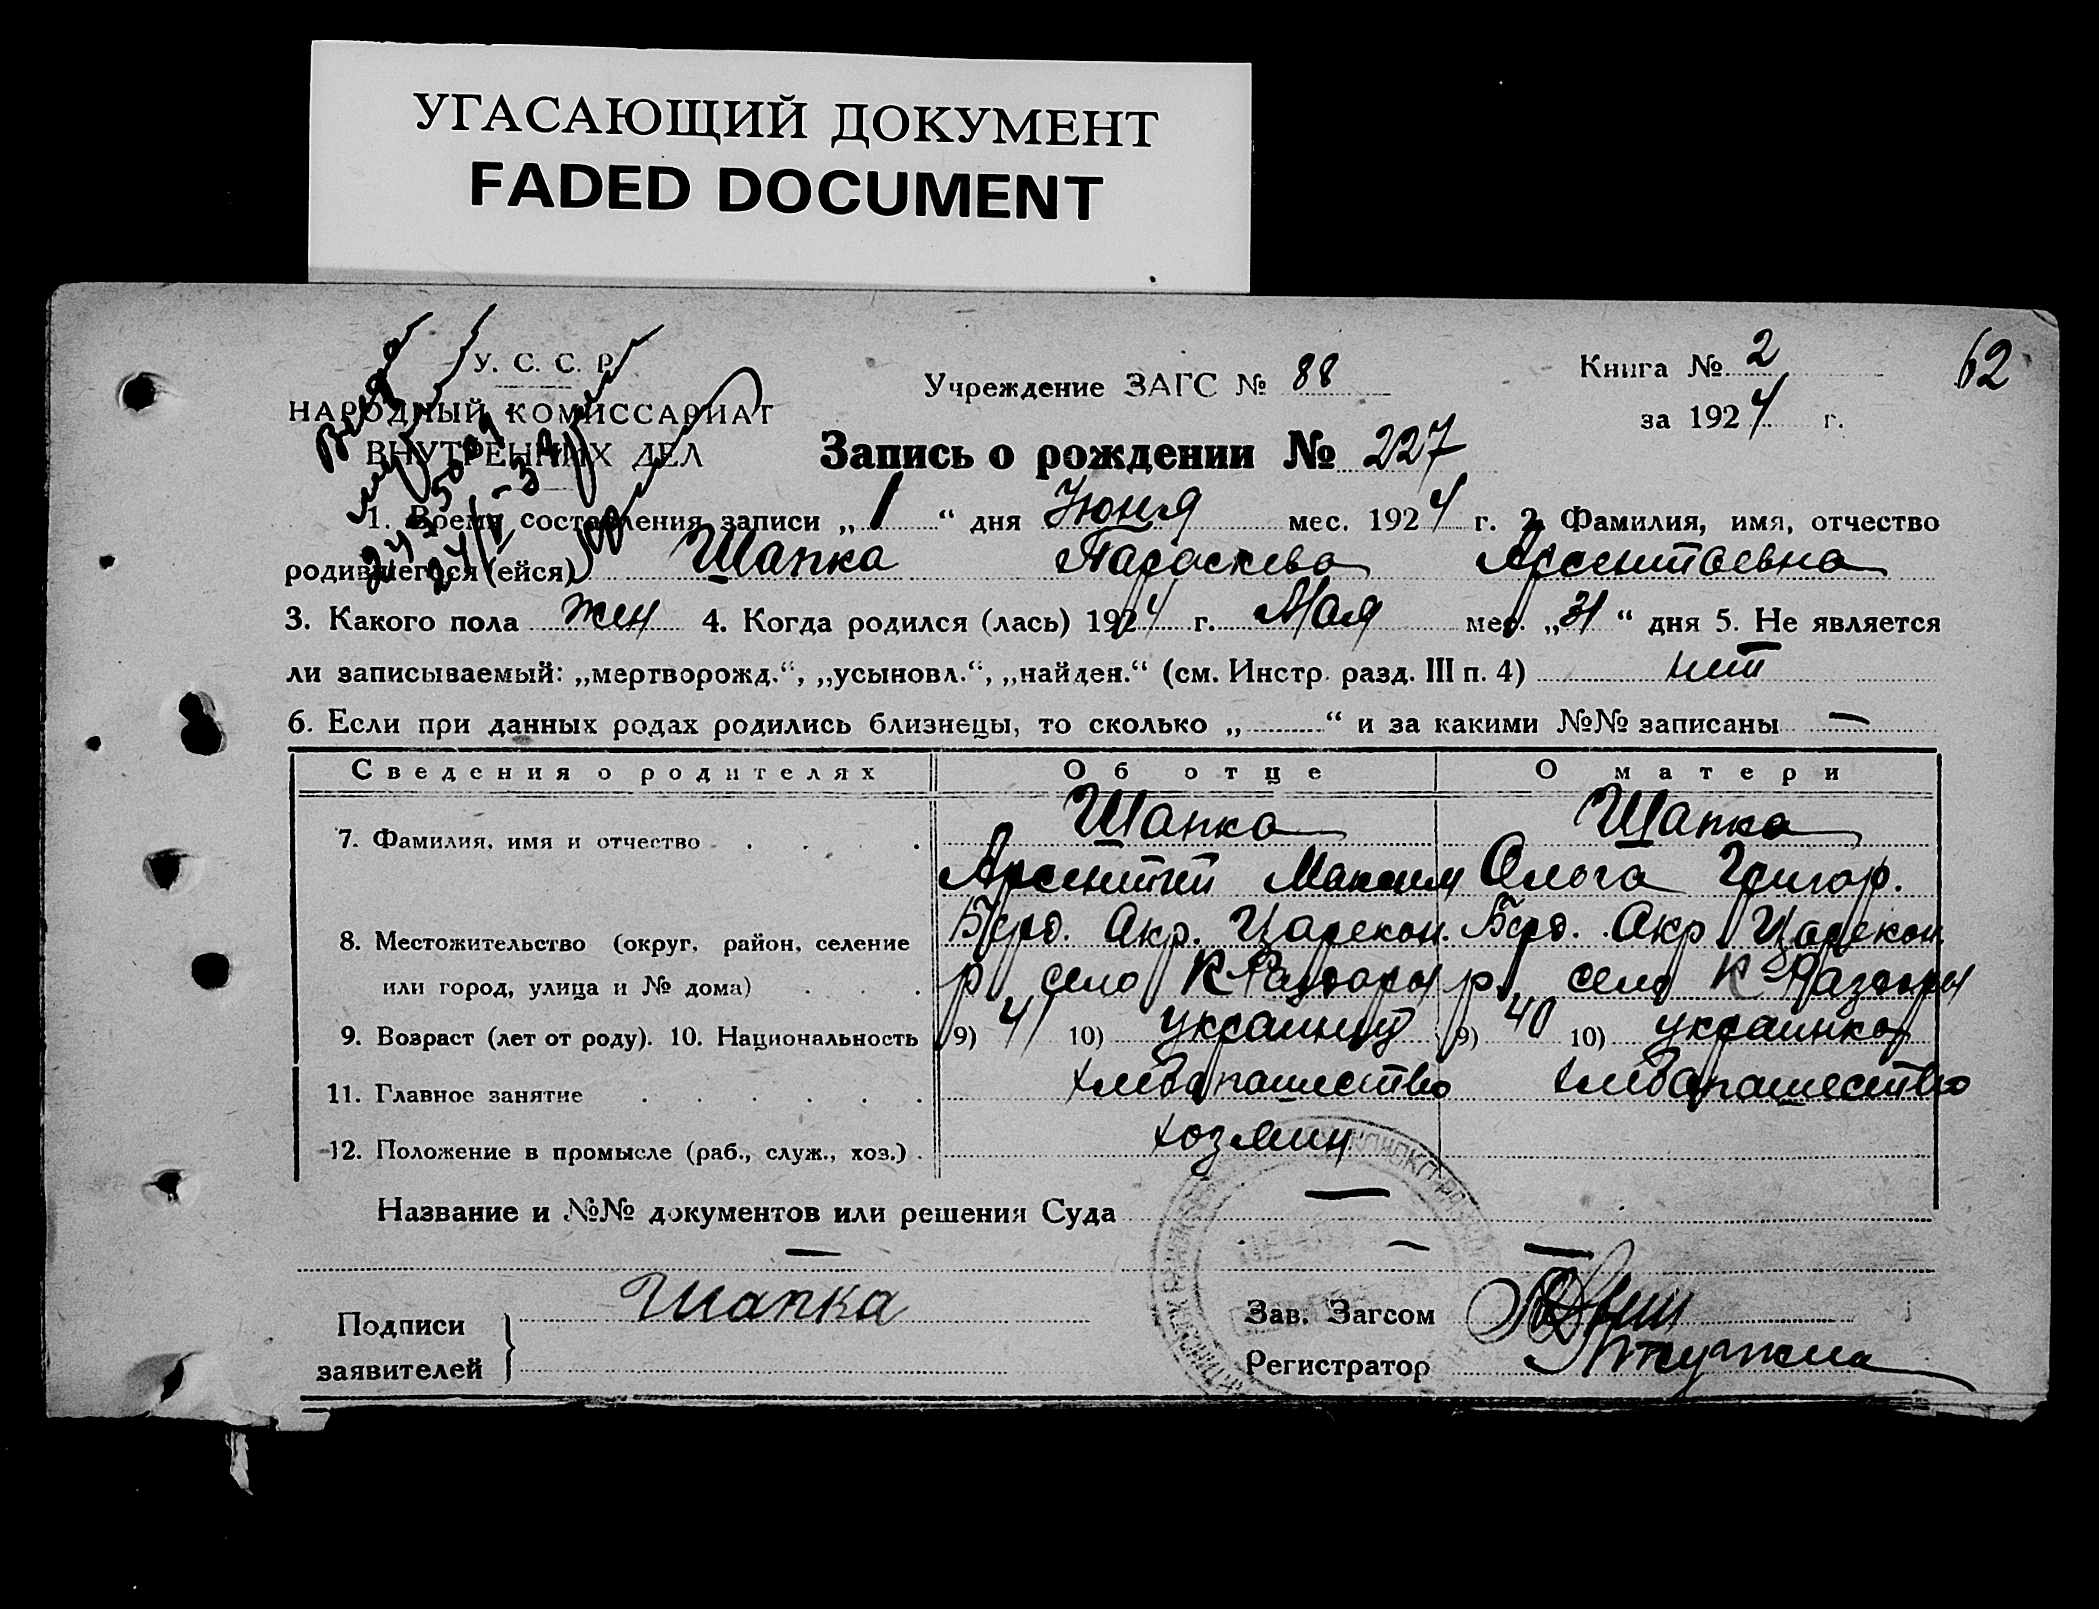 УГАСАЮЩИЙ ДОКУМЕНТ
FADED DOCUMENT
У. С. С. Р.
НАРОДНЫЙ КОМИССАРИАТ
ВНУТРЕННИХ ДЕЛ
Учреждение ЗАГС № 88
Книга № 2
за 1924 г.
62
Запись о рождении № 227
1. Время составления записи „1“ дня Июня мес. 1924 г. 2. Фамилия, имя, отчество
родившегося (ейся) Шапка Параскева Арсентьевна
3. Какого пола жен 4. Когда родился (лась) 1924 г. Мая мес. „31“ дня 5. Не является
ли записываемый: „мертворожд.“, „усыновл.“, „найден.“ (см. Инстр. разд. III п. 4) нет
6. Если при данных родах родились близнецы, то сколько „ “ и за какими №№ записаны —
Сведения о родителях Об отце О матери
7. Фамилия, имя и отчество Шапка Шапка
Арсентий Максим Ольга Григор.
8. Местожительство (округ, район, селение Берд. Окр. Царекон. Берд. Окр Царекон.
или город, улица и № дома) р село К Раздоры р. село К-Раздоры
9. Возраст (лет от роду). 10. Национальность 9) 41 10) украинец 9) 40 10) украинка
11. Главное занятие хлебопашество хлебопашество
12. Положение в промысле (раб., служ., хоз.) хозяин
Название и №№ документов или решения Суда —
Подписи
заявителей
Шапка
Зав. Загсом
Регистратор